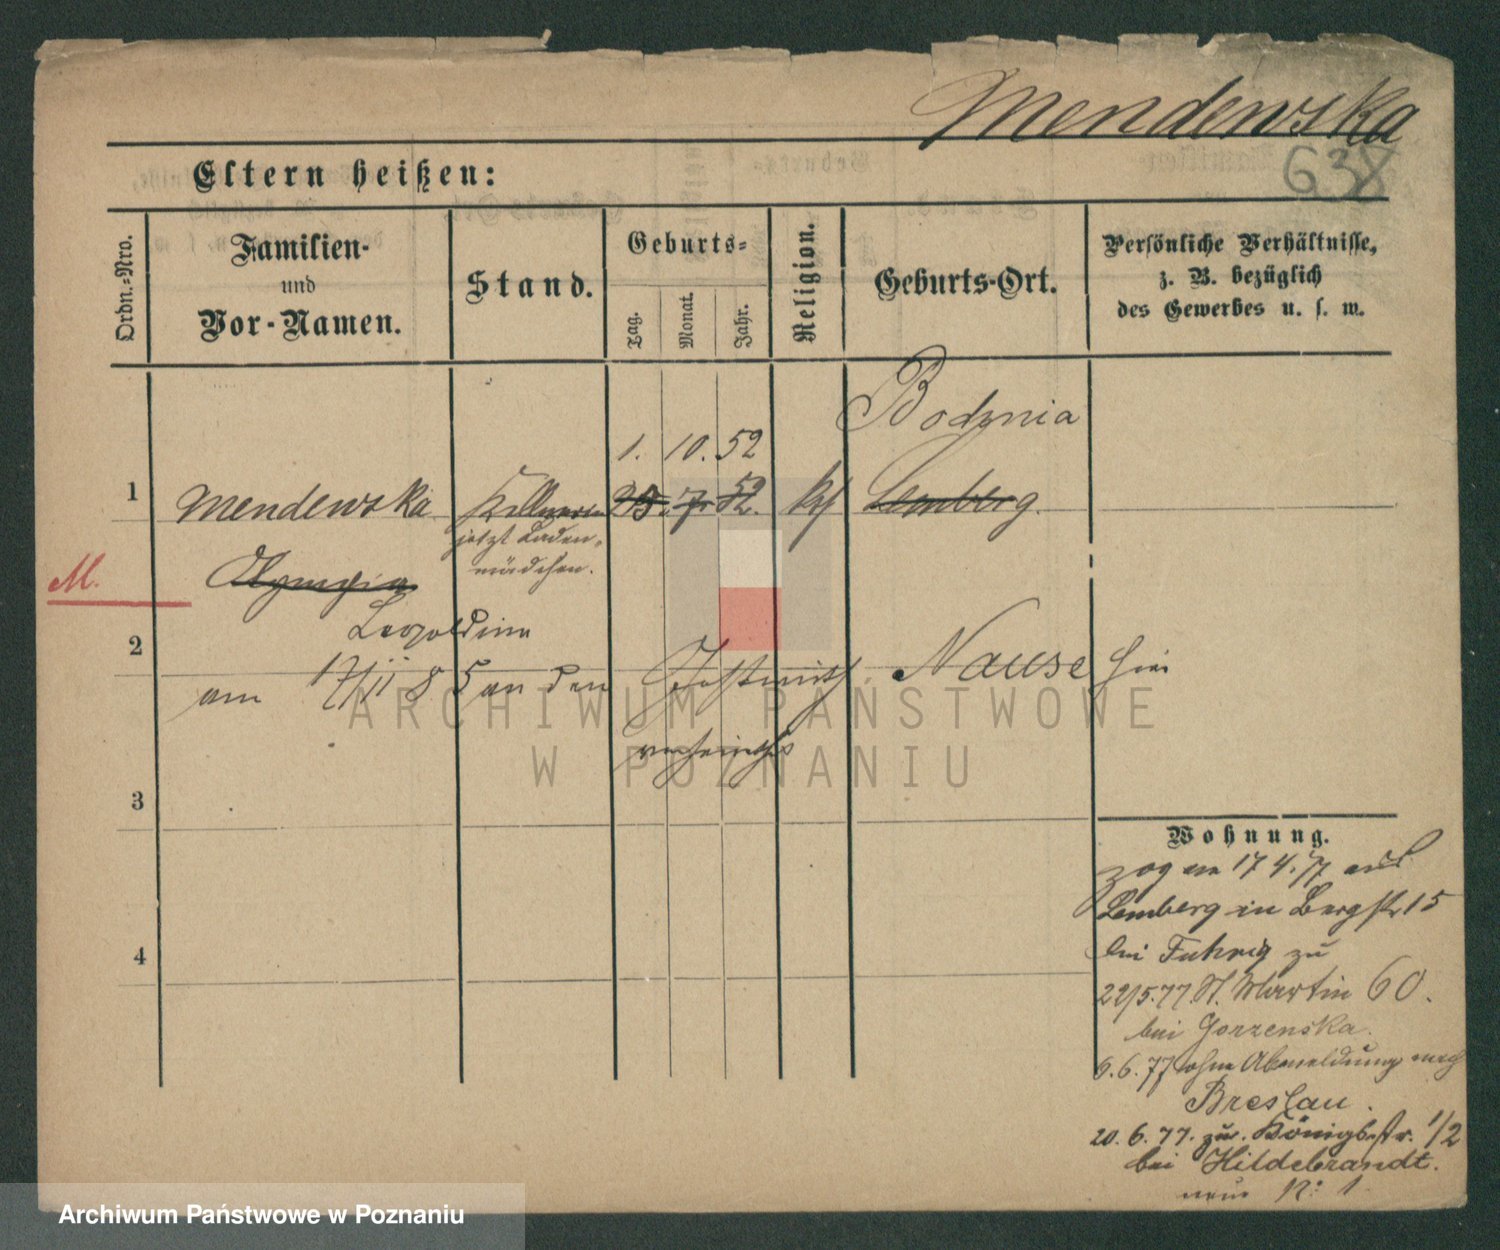 Mendewska
638
Eltern heißen:
Ordn.-Nro.
Familien-
und
Vor-Namen.
Stand.
Geburts-
Tag.
Monat.
Jahr.
Religion.
Geburts-Ort.
Persönliche Verhältnisse,
z. B. bezüglich
des Gewerbes u. s. w.
Bodznia
1. 10. 52
1 Mendewska Kellnerin 25. 7. 52. kth Lemberg.
jetzt Laden-
mädchen.
M.
Olympia
Leopoldine
2
am 17/11 85 an den Gastwirth Nause hier
verheirathet
3
4
Wohnung.
zog am 17 4. 77 aus
Lemberg in Bergstr 15
bei Fuhrig zu
22/5. 77 St. Martin 60.
bei Gorzenska.
6. 6. 77 ohne Abmeldung nach
Breslau.
20. 6. 77. zu. Königsstr. 1/2
bei Hildebrandt.
neue N: 1
ARCHIWUM PAŃSTWOWE
W POZNANIU
Archiwum Państwowe w Poznaniu